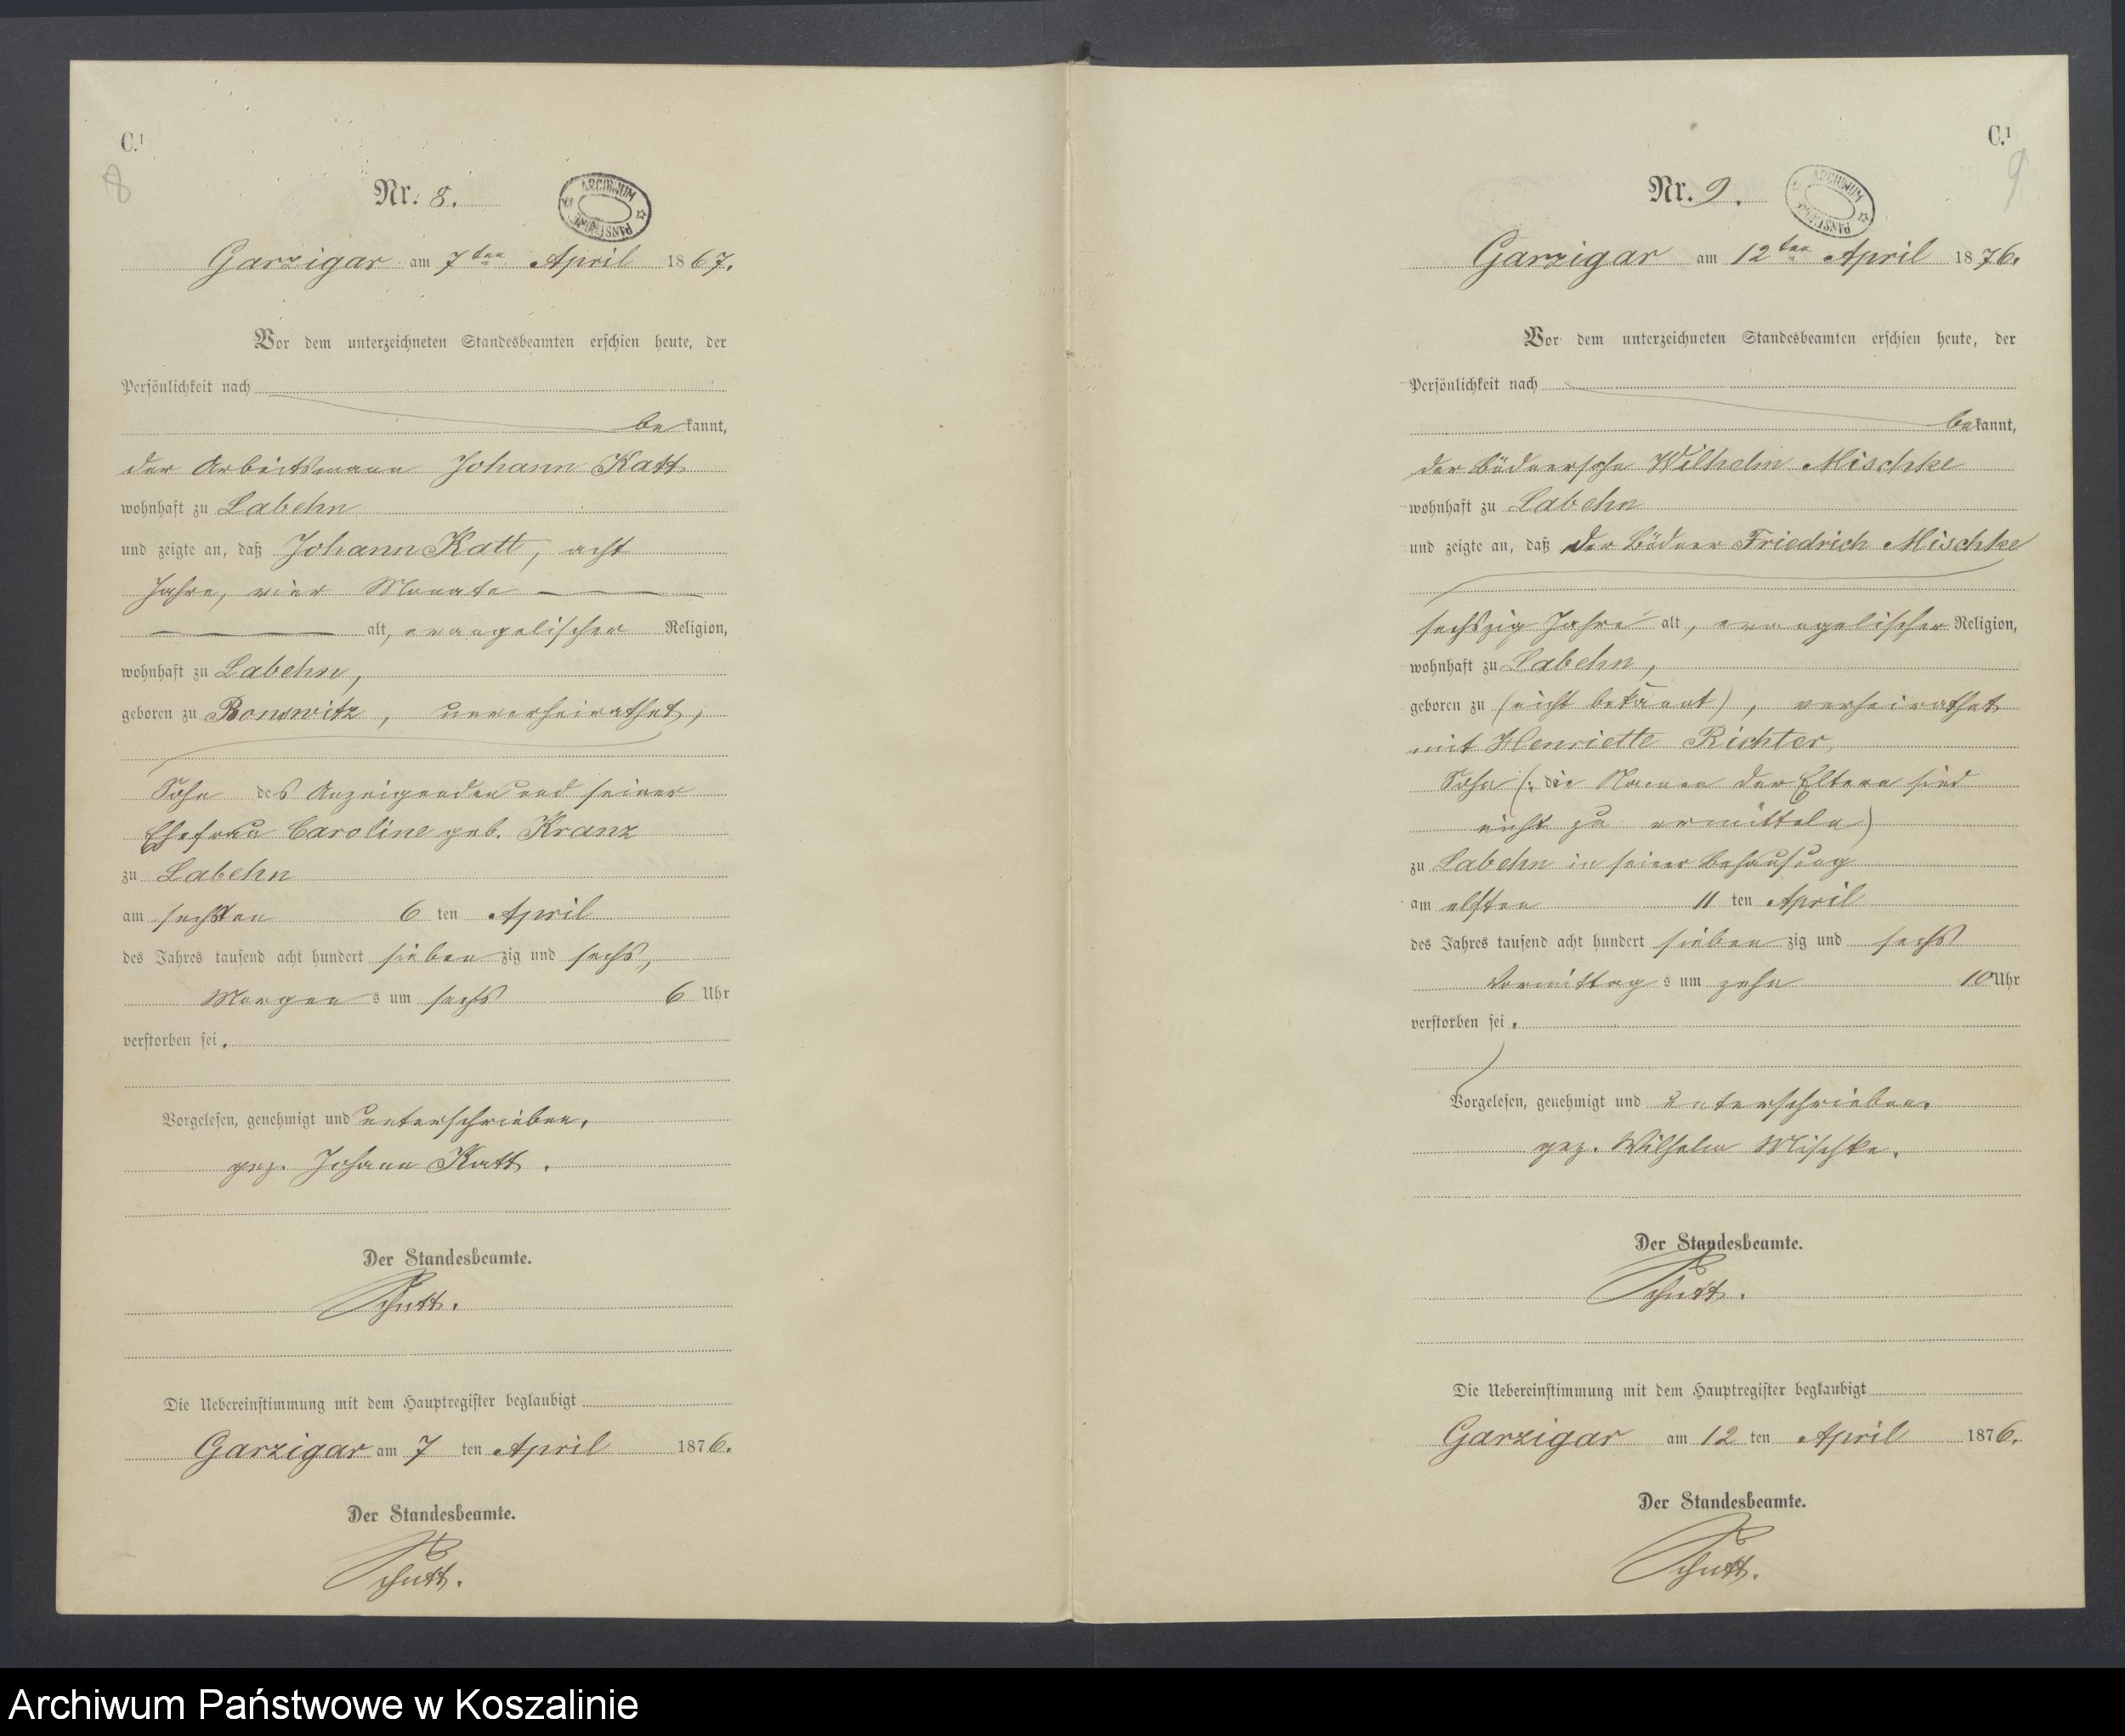 C.¹
8
Nr. 8.
ARCHIWUM PAŃSTWOWE
Garzigar am 7ten April 1867.
Vor dem unterzeichneten Standesbeamten erschien heute, der
Persönlichkeit nach
bekannt,
der Arbeitsmann Johann Katt
wohnhaft zu Labehn
und zeigte an, daß Johann Katt, acht
Jahre, vier Monate
alt, evangelischer Religion,
wohnhaft zu Labehn,
geboren zu Bonswitz, unverheirathet,
Sohn des Anzeigenden und seiner
Ehefrau Caroline geb. Kranz
zu Labehn
am sechsten 6 ten April
des Jahres tausend acht hundert siebenzig und sechs,
Morgens um sechs 6 Uhr
verstorben sei.
Vorgelesen, genehmigt und unterschrieben.
gez. Johann Katt.
Der Standesbeamte.
Schutt.
Die Uebereinstimmung mit dem Hauptregister beglaubigt
Garzigar am 7 ten April 1876.
Der Standesbeamte.
Schutt.
C.¹
9
Nr. 9.
ARCHIWUM PAŃSTWOWE
Garzigar am 12ten April 1876.
Vor dem unterzeichneten Standesbeamten erschien heute, der
Persönlichkeit nach
bekannt,
der Büdnersohn Wilhelm Mischke
wohnhaft zu Labehn
und zeigte an, daß der Büdner Friedrich Mischke
sechszig Jahre alt, evangelischer Religion,
wohnhaft zu Labehn,
geboren zu (nicht bekannt), verheirathet
mit Henriette Richter,
Sohn (: die Namen der Eltern sind
nicht zu ermitteln)
zu Labehn in seiner Behausung
am elften 11 ten April
des Jahres tausend acht hundert siebenzig und sechs
Vormittags um zehn 10 Uhr
verstorben sei.
Vorgelesen, genehmigt und unterschrieben.
gez. Wilhelm Mischke.
Der Standesbeamte.
Schutt.
Die Uebereinstimmung mit dem Hauptregister beglaubigt
Garzigar am 12 ten April 1876.
Der Standesbeamte.
Schutt.
Archiwum Państwowe w Koszalinie